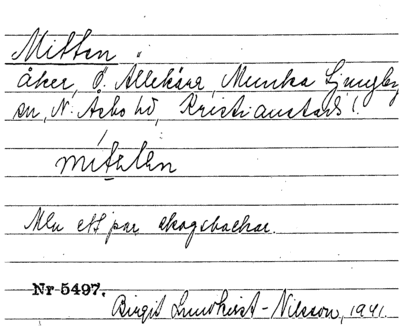 Mitten
åker, Ö. Allekärr, Munka Ljungby
sn, N. Åsbo hd, Kristianstads l.
mitən
Med ett par skogsbackar.
Nr 5497.
Birgit Lundkvist-Nilsson, 1941.